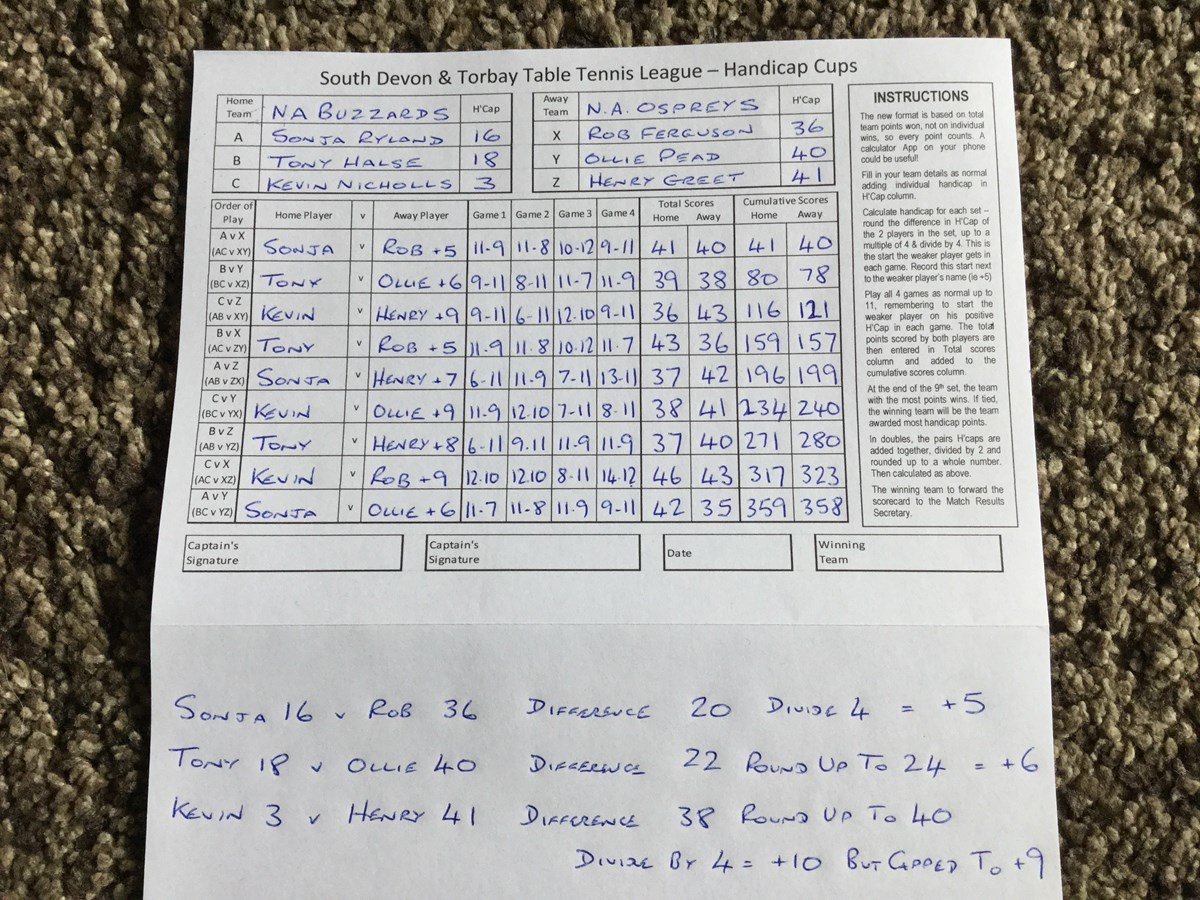 South Devon & Torbay Table Tennis League – Handicap Cups
Home Team NA BUZZARDS H'Cap
A SONJA RYLAND 16
B TONY HALSE 18
C KEVIN NICHOLLS 3
Away Team N.A. OSPREYS H'Cap
X ROB FERGUSON 36
Y OLLIE PEAD 40
Z HENRY GREET 41
Order of Play Home Player v Away Player Game 1 Game 2 Game 3 Game 4 Total Scores Home Away Cumulative Scores Home Away
A v X (AC v XY) SONJA v ROB +5 11-9 11-8 10-12 9-11 41 40 41 40
B v Y (BC v XZ) TONY v OLLIE +6 9-11 8-11 11-7 11-9 39 38 80 78
C v Z (AB v XY) KEVIN v HENRY +9 9-11 6-11 12.10 9-11 36 43 116 121
B v X (AC v ZY) TONY v ROB +5 11.9 11.8 10-12 11.7 43 36 159 157
A v Z (AB v ZX) SONJA v HENRY +7 6-11 11.9 7-11 13-11 37 42 196 199
C v Y (BC v YX) KEVIN v OLLIE +9 11.9 12.10 7-11 8-11 38 41 234 240
B v Z (AB v YZ) TONY v HENRY +8 6-11 9.11 11.9 11.9 37 40 271 280
C v X (AC v XZ) KEVIN v ROB +9 12.10 12.10 8-11 14.12 46 43 317 323
A v Y (BC v YZ) SONJA v OLLIE +6 11-7 11-8 11.9 9-11 42 35 359 358
INSTRUCTIONS
The new format is based on total
team points won, not on individual
wins, so every point counts. A
calculator App on your phone
could be useful!
Fill in your team details as normal
adding individual handicap in
H'Cap column.
Calculate handicap for each set –
round the difference in H'Cap of
the 2 players in the set, up to a
multiple of 4 & divide by 4. This is
the start the weaker player gets in
each game. Record this start next
to the weaker player's name (ie +5)
Play all 4 games as normal up to
11, remembering to start the
weaker player on his positive
H'Cap in each game. The total
points scored by both players are
then entered in Total scores
column and added to the
cumulative scores column.
At the end of the 9th set, the team
with the most points wins. If tied,
the winning team will be the team
awarded most handicap points.
In doubles, the pairs H'caps are
added together, divided by 2 and
rounded up to a whole number.
Then calculated as above.
The winning team to forward the
scorecard to the Match Results
Secretary.
Captain's Signature
Captain's Signature
Date
Winning Team
SONJA 16 v ROB 36 DIFFERENCE 20 DIVIDE 4 = +5
TONY 18 v OLLIE 40 DIFFERENCE 22 ROUND UP TO 24 = +6
KEVIN 3 v HENRY 41 DIFFERENCE 38 ROUND UP TO 40
DIVIDE BY 4 = +10 BUT CAPPED TO +9